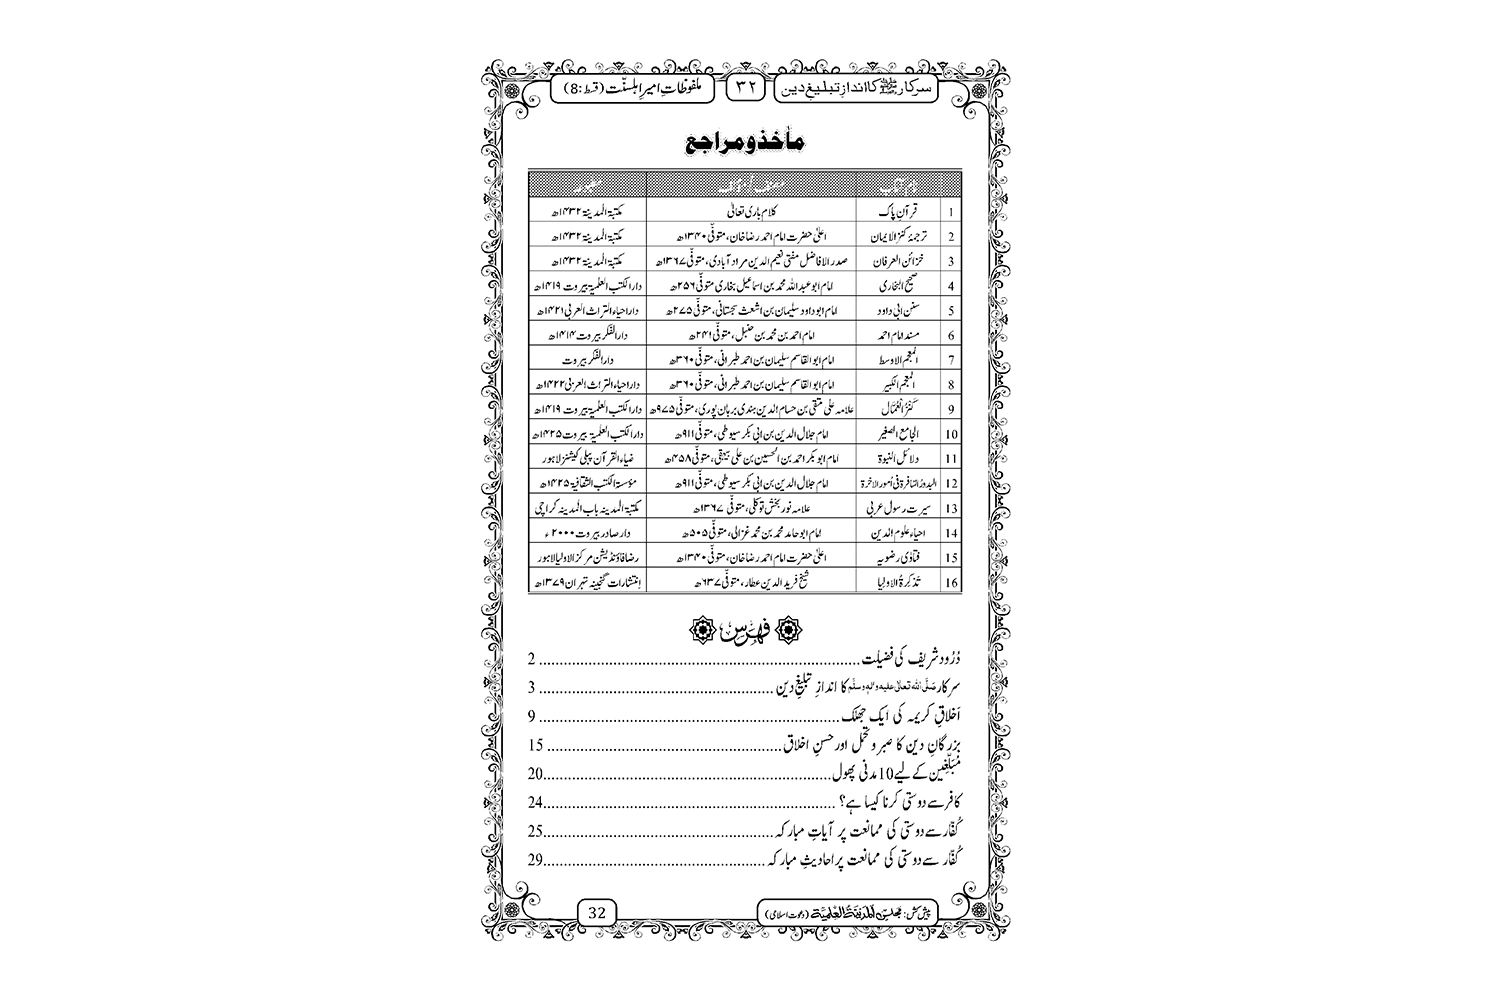 سرکار ﷺ کا اندازِ تبلیغِ دین ۳۲ ملفوظاتِ امیرِ اہلسنّت (قسط:8)
مأخذ و مراجع
نام کتاب مصنف / مؤلف مطبوعہ
1 قرآنِ پاک کلام باری تعالیٰ مکتبۃ المدینۃ ۱۴۳۲ھ
2 ترجمۂ کنز الایمان اعلیٰ حضرت امام احمد رضا خان، متوفّٰی ۱۳۴۰ھ مکتبۃ المدینۃ ۱۴۳۲ھ
3 خزائن العرفان صدر الافاضل مفتی نعیم الدین مراد آبادی، متوفّٰی ۱۳۶۷ھ مکتبۃ المدینۃ ۱۴۳۲ھ
4 صحیح البخاری امام ابو عبد اللہ محمد بن اسماعیل بخاری متوفّٰی ۲۵۶ھ دار الکتب العلمیۃ بیروت ۱۴۱۹ھ
5 سنن ابی داود امام ابو داود سلیمان بن اشعث سجستانی، متوفّٰی ۲۷۵ھ دار احیاء التراث العربی ۱۴۲۱ھ
6 مسند امام احمد امام احمد بن محمد بن حنبل، متوفّٰی ۲۴۱ھ دار الفکر بیروت ۱۴۱۴ھ
7 المعجم الاوسط امام ابو القاسم سلیمان بن احمد طبرانی، متوفّٰی ۳۶۰ھ دار الفکر بیروت
8 المعجم الکبیر امام ابو القاسم سلیمان بن احمد طبرانی، متوفّٰی ۳۶۰ھ دار احیاء التراث العربی ۱۴۲۲ھ
9 کَنْزُ الْعُمَّال علامہ علی متقی بن حسام الدین ہندی برہان پوری، متوفّٰی ۹۷۵ھ دار الکتب العلمیۃ بیروت ۱۴۱۹ھ
10 الجامع الصغیر امام جلال الدین بن ابی بکر سیوطی، متوفّٰی ۹۱۱ھ دار الکتب العلمیۃ بیروت ۱۴۲۵ھ
11 دلائل النبوۃ امام ابو بکر احمد بن الحسین بن علی بیہقی، متوفّٰی ۴۵۸ھ ضیاء القرآن پبلی کیشنز لاہور
12 البدورُ السّافرۃ فی اُمور الاٰخرۃ امام جلال الدین بن ابی بکر سیوطی، متوفّٰی ۹۱۱ھ مؤسسۃ الکتب الثقافیۃ ۱۴۲۵ھ
13 سیرت رسول عربی علامہ نور بخش توکلی، متوفّٰی ۱۳۶۷ھ مکتبۃ المدینہ باب المدینہ کراچی
14 احیاء علوم الدین امام ابو حامد محمد بن محمد غزالی، متوفّٰی ۵۰۵ھ دار صادر بیروت ۲۰۰۰ء
15 فتاوٰی رضویہ اعلیٰ حضرت امام احمد رضا خان، متوفّٰی ۱۳۴۰ھ رضا فاؤنڈیشن مرکز الاولیا لاہور
16 تَذْکِرۃُ الاولیا شیخ فرید الدین عطار، متوفّٰی ۶۳۷ھ اِنتشارات گنجینہ تہران ۱۳۷۹ھ
فہرس
دُرُود شریف کی فضیلت .......... 2
سرکار صَلَّی اللہ تعالٰی علیہ واٰلہٖ وسلَّم کا اندازِ تبلیغِ دین .......... 3
اَخلاقِ کریمہ کی ایک جھلک .......... 9
بزرگانِ دین کا صبر و تحمل اور حسنِ اخلاق .......... 15
مُبَلِّغین کے لیے 10 مدنی پھول .......... 20
کافر سے دوستی کرنا کیسا ہے؟ .......... 24
کُفّار سے دوستی کی ممانعت پر آیاتِ مبارکہ .......... 25
کُفّار سے دوستی کی ممانعت پر احادیثِ مبارکہ .......... 29
پیش کش: مجلس المدینۃ العلمیۃ (دعوتِ اسلامی) 32